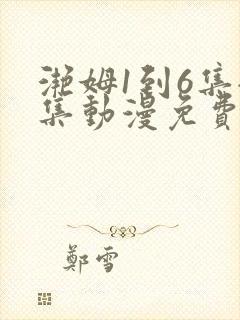 灧姆1到6集
集動漫免費
鄭雪